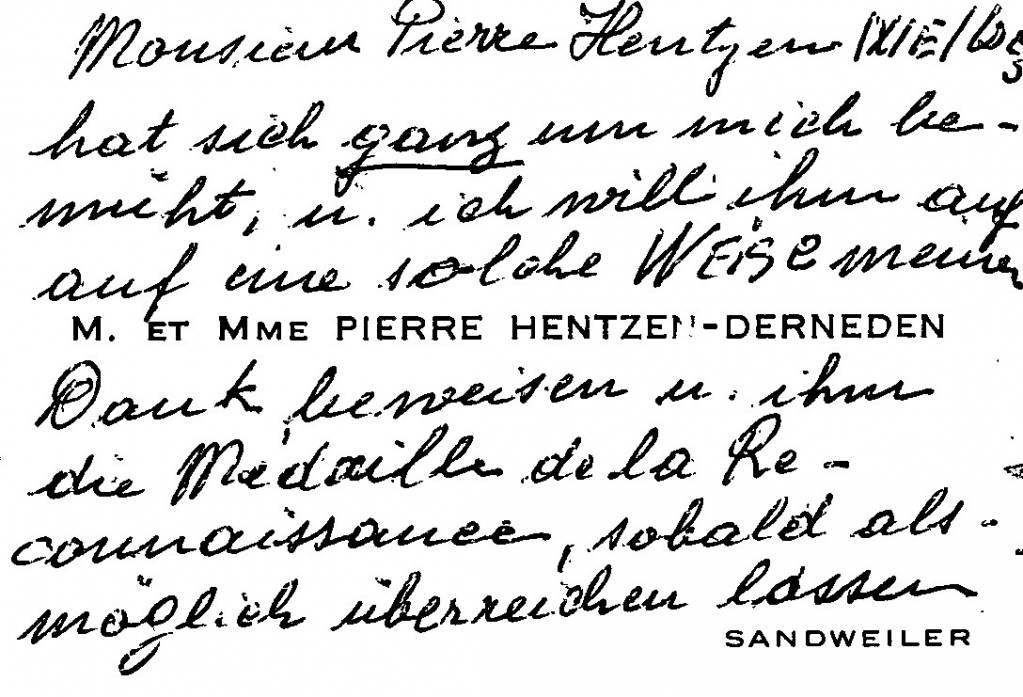 Monsieur Pierre Hentzen
hat sich ganz um mich be-
müht, u. ich will ihm auf
auf eine solche WEISE meinen
M. ET MME PIERRE HENTZEN-DERNEDEN
Dank beweisen u. ihm
die Médaille de la Re-
connaissance, sobald als-
möglich überreichen lassen
SANDWEILER